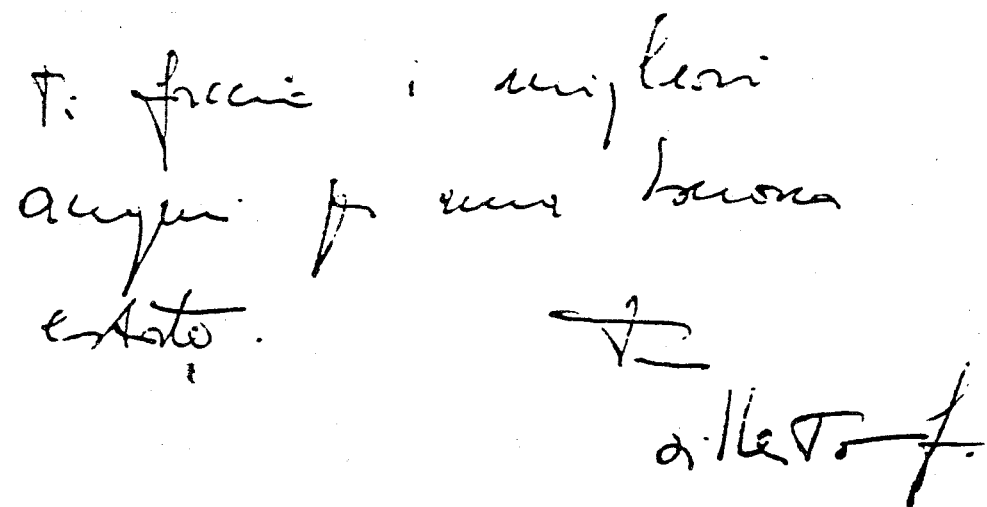 Ti faccio i migliori
auguri p una buona
estate.